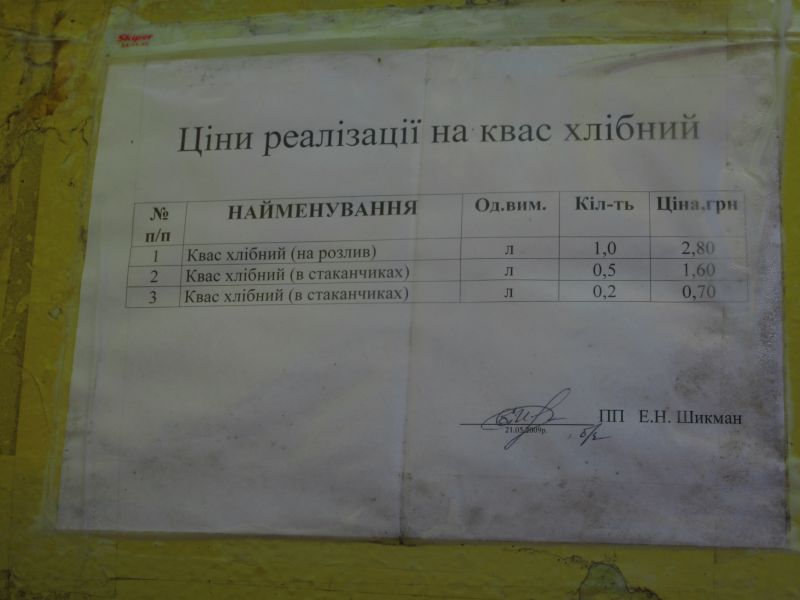 Skiper
Ціни реалізації на квас хлібний
№ п/п НАЙМЕНУВАННЯ Од.вим. Кіл-ть Ціна,грн
1 Квас хлібний (на розлив) л 1,0 2,80
2 Квас хлібний (в стаканчиках) л 0,5 1,60
3 Квас хлібний (в стаканчиках) л 0,2 0,70
ПП Е.Н. Шикман
21.05.2009р.
б/к